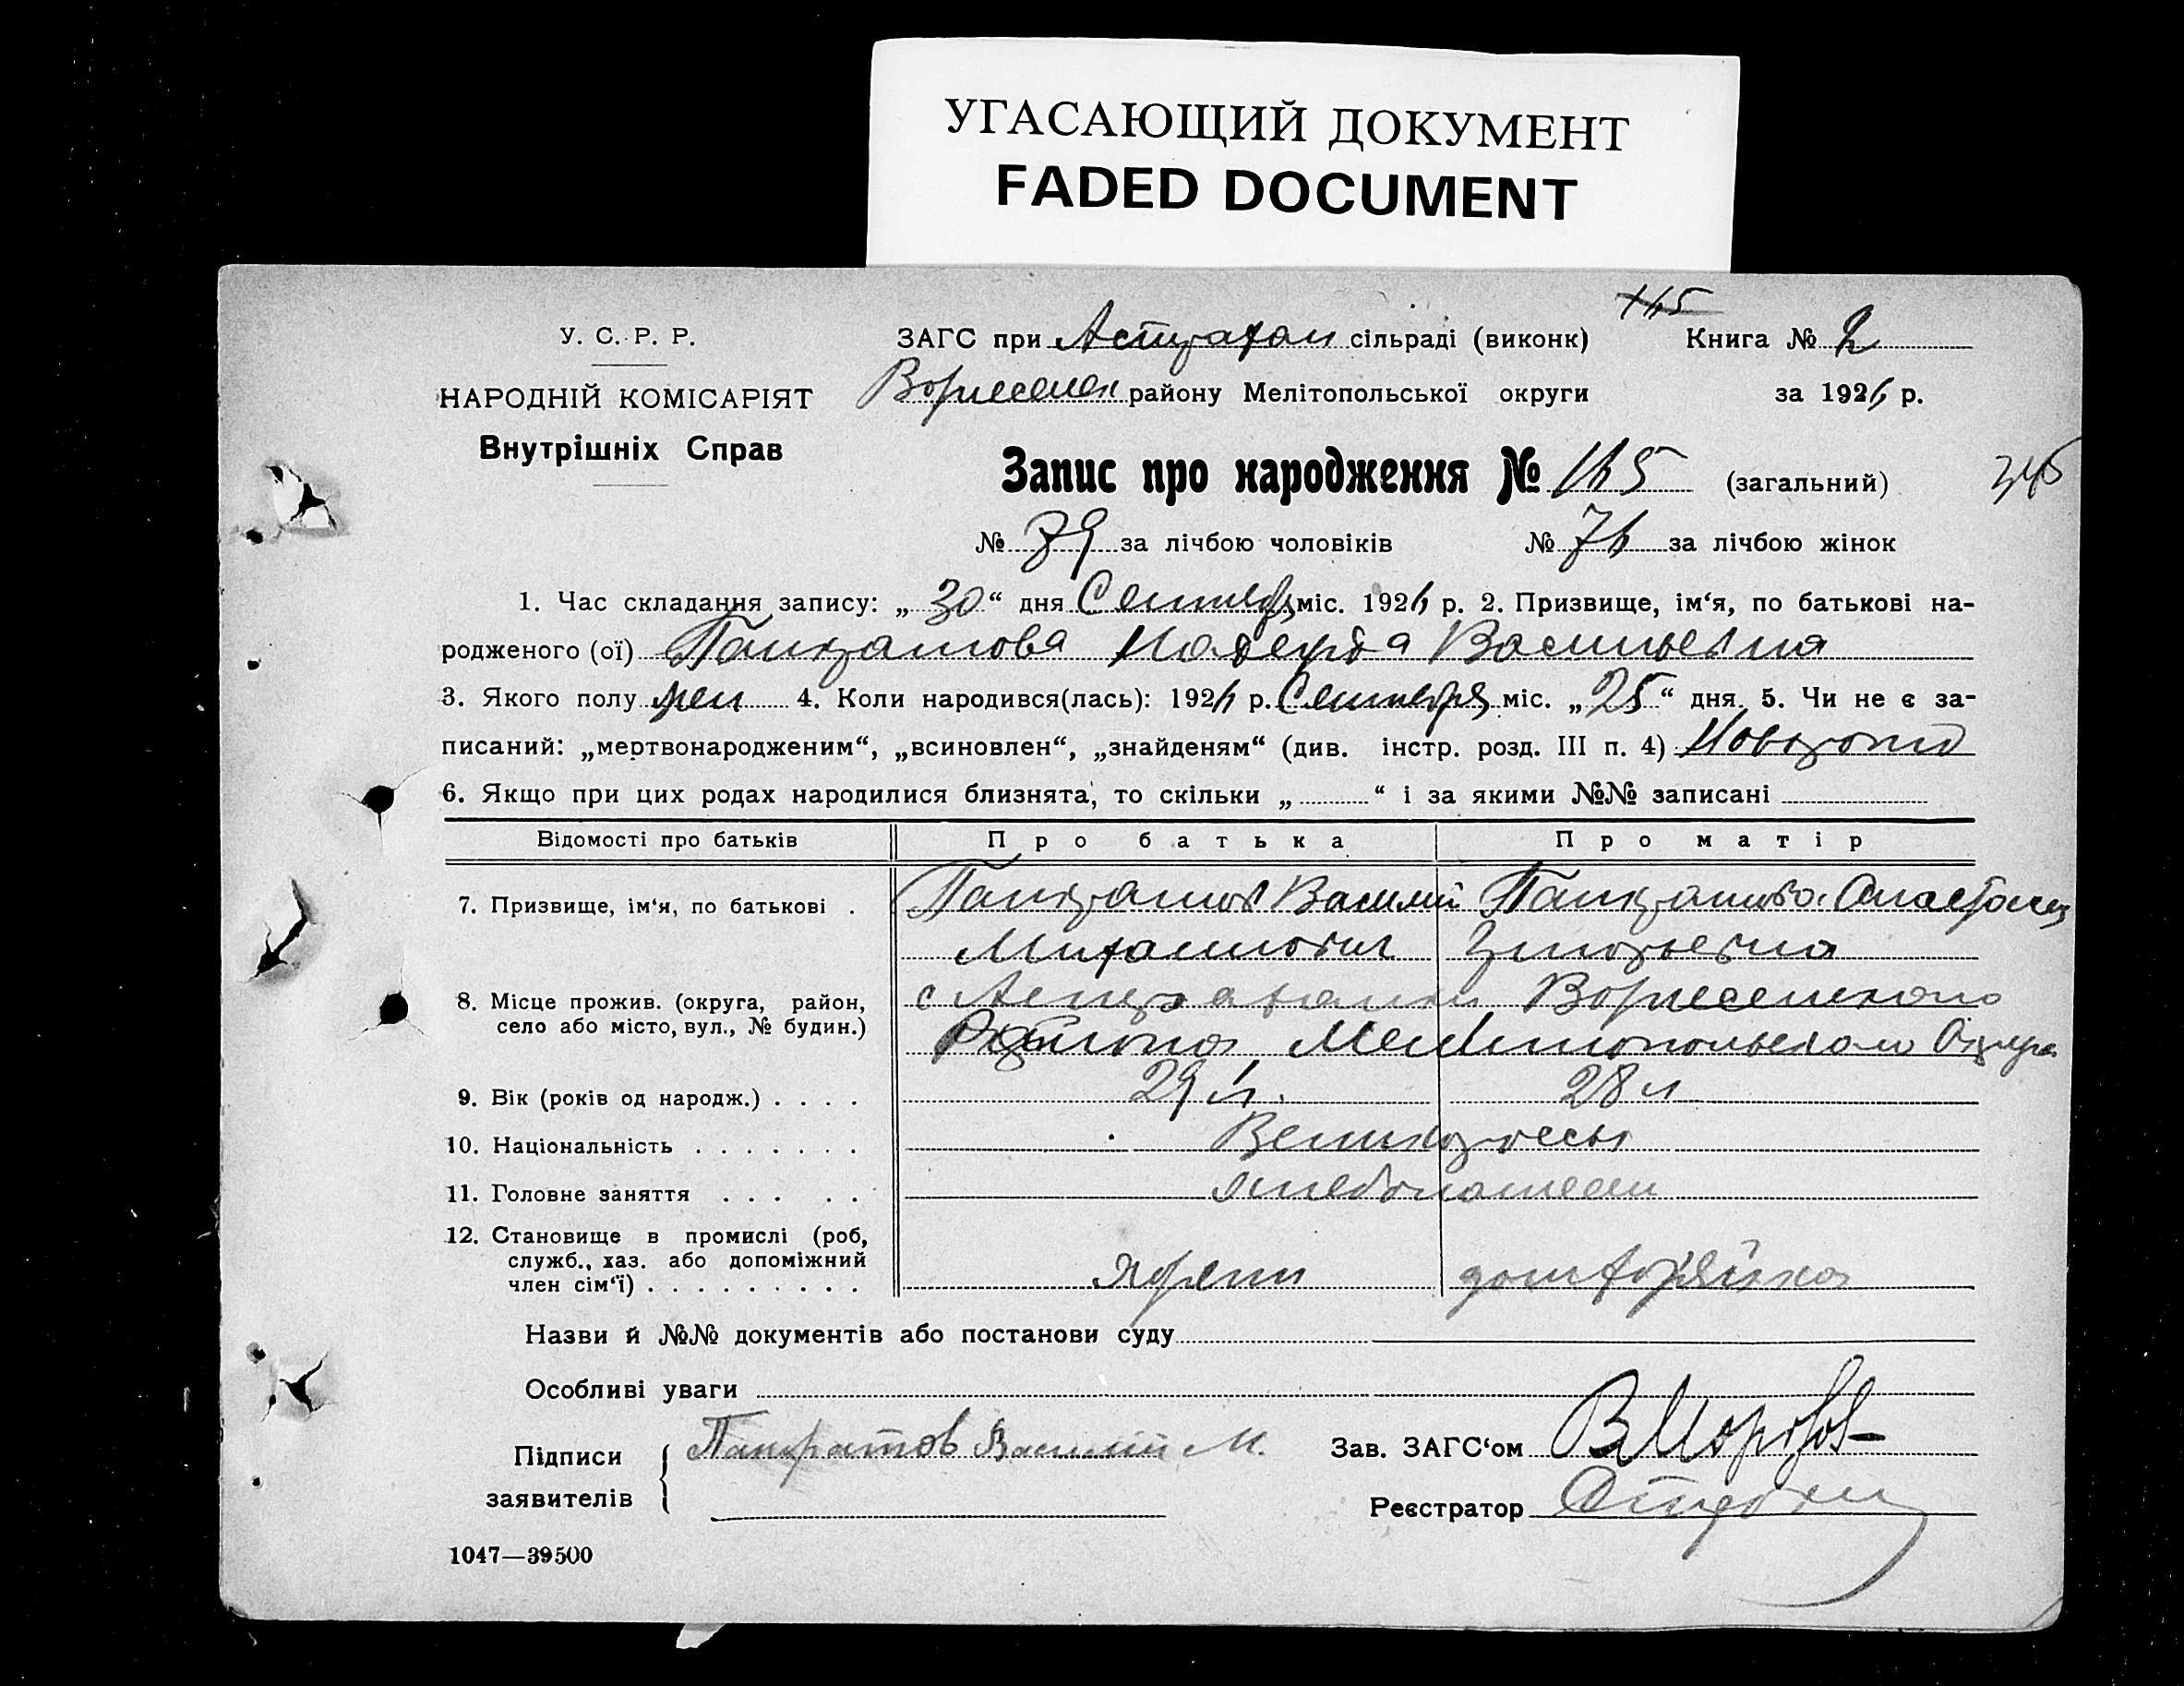 УГАСАЮЩИЙ ДОКУМЕНТ
FADED DOCUMENT
У. С. Р. Р.
НАРОДНІЙ КОМІСАРІЯТ
Внутрішніх Справ
ЗАГС при Астрахан сільраді (виконк) Книга № 2
району Мелітопольської округи за 1926 р.
Запис про народження № 165 (загальний)
345
№ 79 за лічбою чоловіків № 76 за лічбою жінок
1. Час складання запису: „ 30 “ дня Сентября міс. 1926 р. 2. Призвище, ім‘я, по батькові на-
родженого (ої) Панкратова Надежда Васильевна
3. Якого полу жен 4. Коли народився(лась): 1926 р. Сентября міс. „ 25 “ дня. 5. Чи не є за-
писаний: „мертвонародженим“, „всиновлен“, „знайденям“ (див. інстр. розд. III п. 4)
6. Якщо при цих родах народилися близнята, то скільки „ “ і за якими №№ записані
Відомості про батьків Про батька Про матір
7. Призвище, ім‘я, по батькові . Панкратов Василий Панкратова Анастасия
Михайлович Зиновьевна
8. Місце прожив. (округа, район, с Астраханки Вознесенского
село або місто, вул., № будин.) Района Мелитопольского Округа
9. Вік (років од народж.) . . . . 29 л. 28 л
10. Національність . . . . . . . Великороссы
11. Головне заняття . . . . . хлебопашец
12. Становище в промислі (роб,
служб., хаз. або допоміжний
член сім‘ї) . . . . . . . . . хозяин домхозяйка
Назви й №№ документів або постанови суду
Особливі уваги
Підписи заявителів Панкратов Василий М. Зав. ЗАГС‘ом
Реєстратор
1047—39500